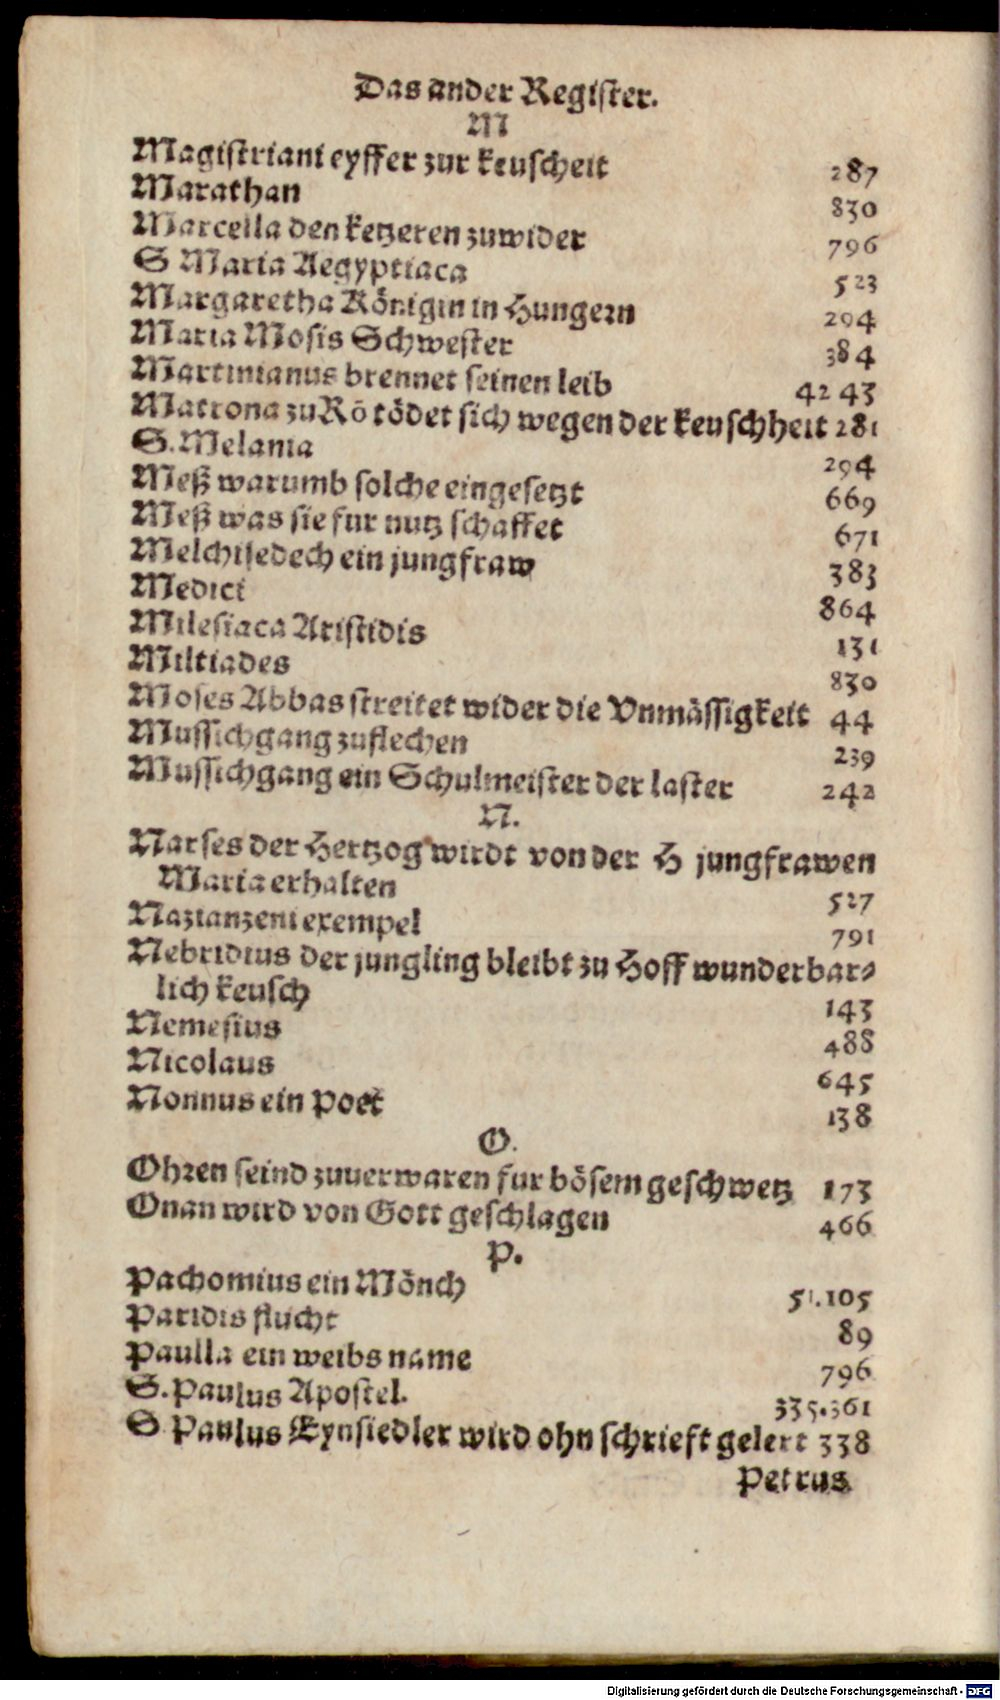 Das ander Register.
M
Magistriani eyffer zur keuscheit 287
Marathan 830
Marcella den ketzeren zuwider 796
S Maria Aegyptiaca 523
Margaretha Königin in Hungern 294
Maria Mosis Schwester 384
Martinianus brennet seinen leib 42 43
Matrona zu Rõ tödet sich wegen der keuschheit 281
S. Melania 294
Meß warumb solche eingesetzt 669
Meß was sie fur nutz schaffet 671
Melchisedech ein jungfraw 383
Medici 864
Milesiaca Aristidis 131
Miltiades 830
Moses Abbas streitet wider die Vnmässigkeit 44
Mussichgang zuflechen 239
Mussichgang ein Schulmeister der laster 242
N.
Narses der Hertzog wirdt von der H jungfrawen
Maria erhalten 527
Nazianzeni exempel 791
Nebridius der jungling bleibt zu Hoff wunderbar⸗
lich keusch 143
Nemesius 488
Nicolaus 645
Nonnus ein Poet 138
O.
Ohren seind zuuerwaren fur bösem geschwetz 173
Onan wird von Gott geschlagen 466
P.
Pachomius ein Mönch 51.105
Paridis flucht 89
Paulla ein weibs name 796
S. Paulus Apostel. 335.361
S Paulus Eynsiedler wird ohn schrieft gelert 338
Petrus
Digitalisierung gefördert durch die Deutsche Forschungsgemeinschaft - DFG